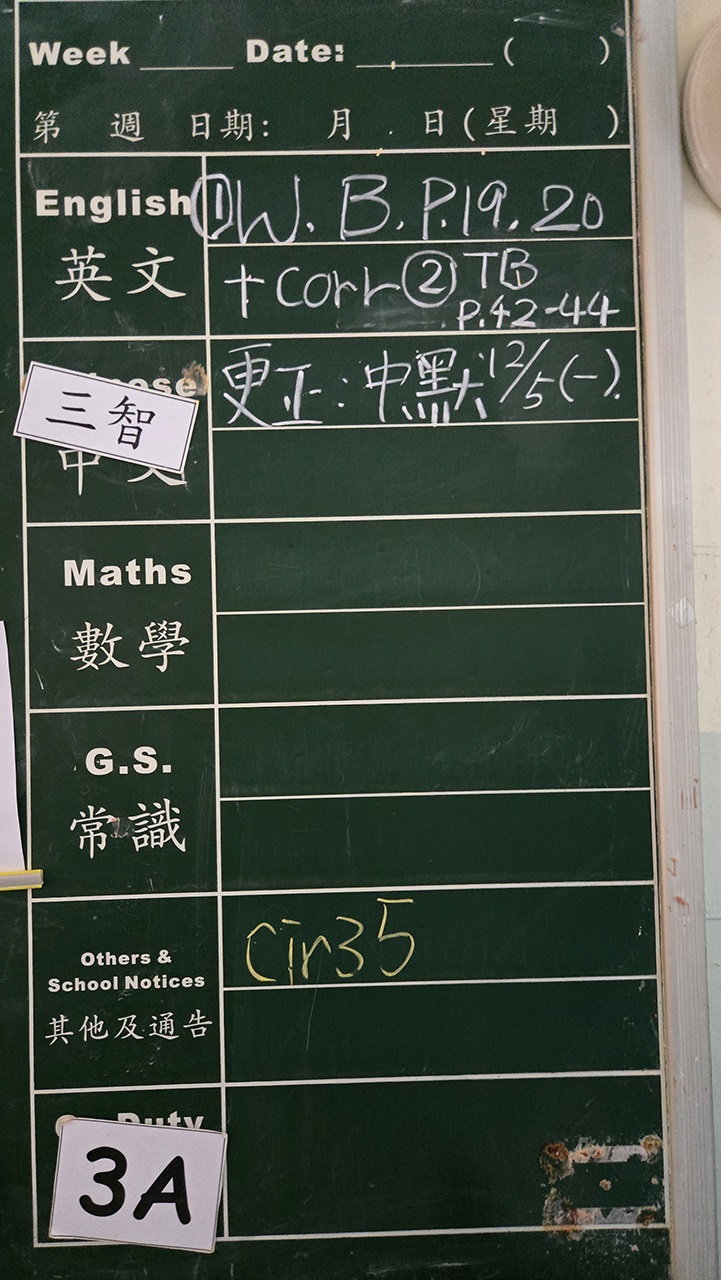 Week ____ Date: ______ ( )
第 週 日期: 月 日(星期 )
English
英文
①W. B. P.19. 20
+ corr ② TB
P.42-44
三智
更正: 中默 12/5(一).
Maths
數學
G.S.
常識
Others &
School Notices
其他及通告
Cir35
Duty
3A